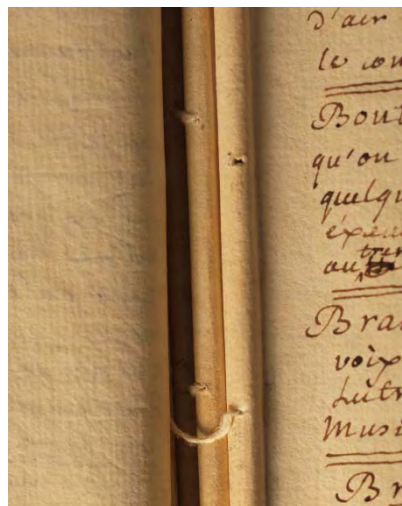 d'air
le
Bout
qu'on
quelqu
au
Bra
voix
Lutr
Musi
Br